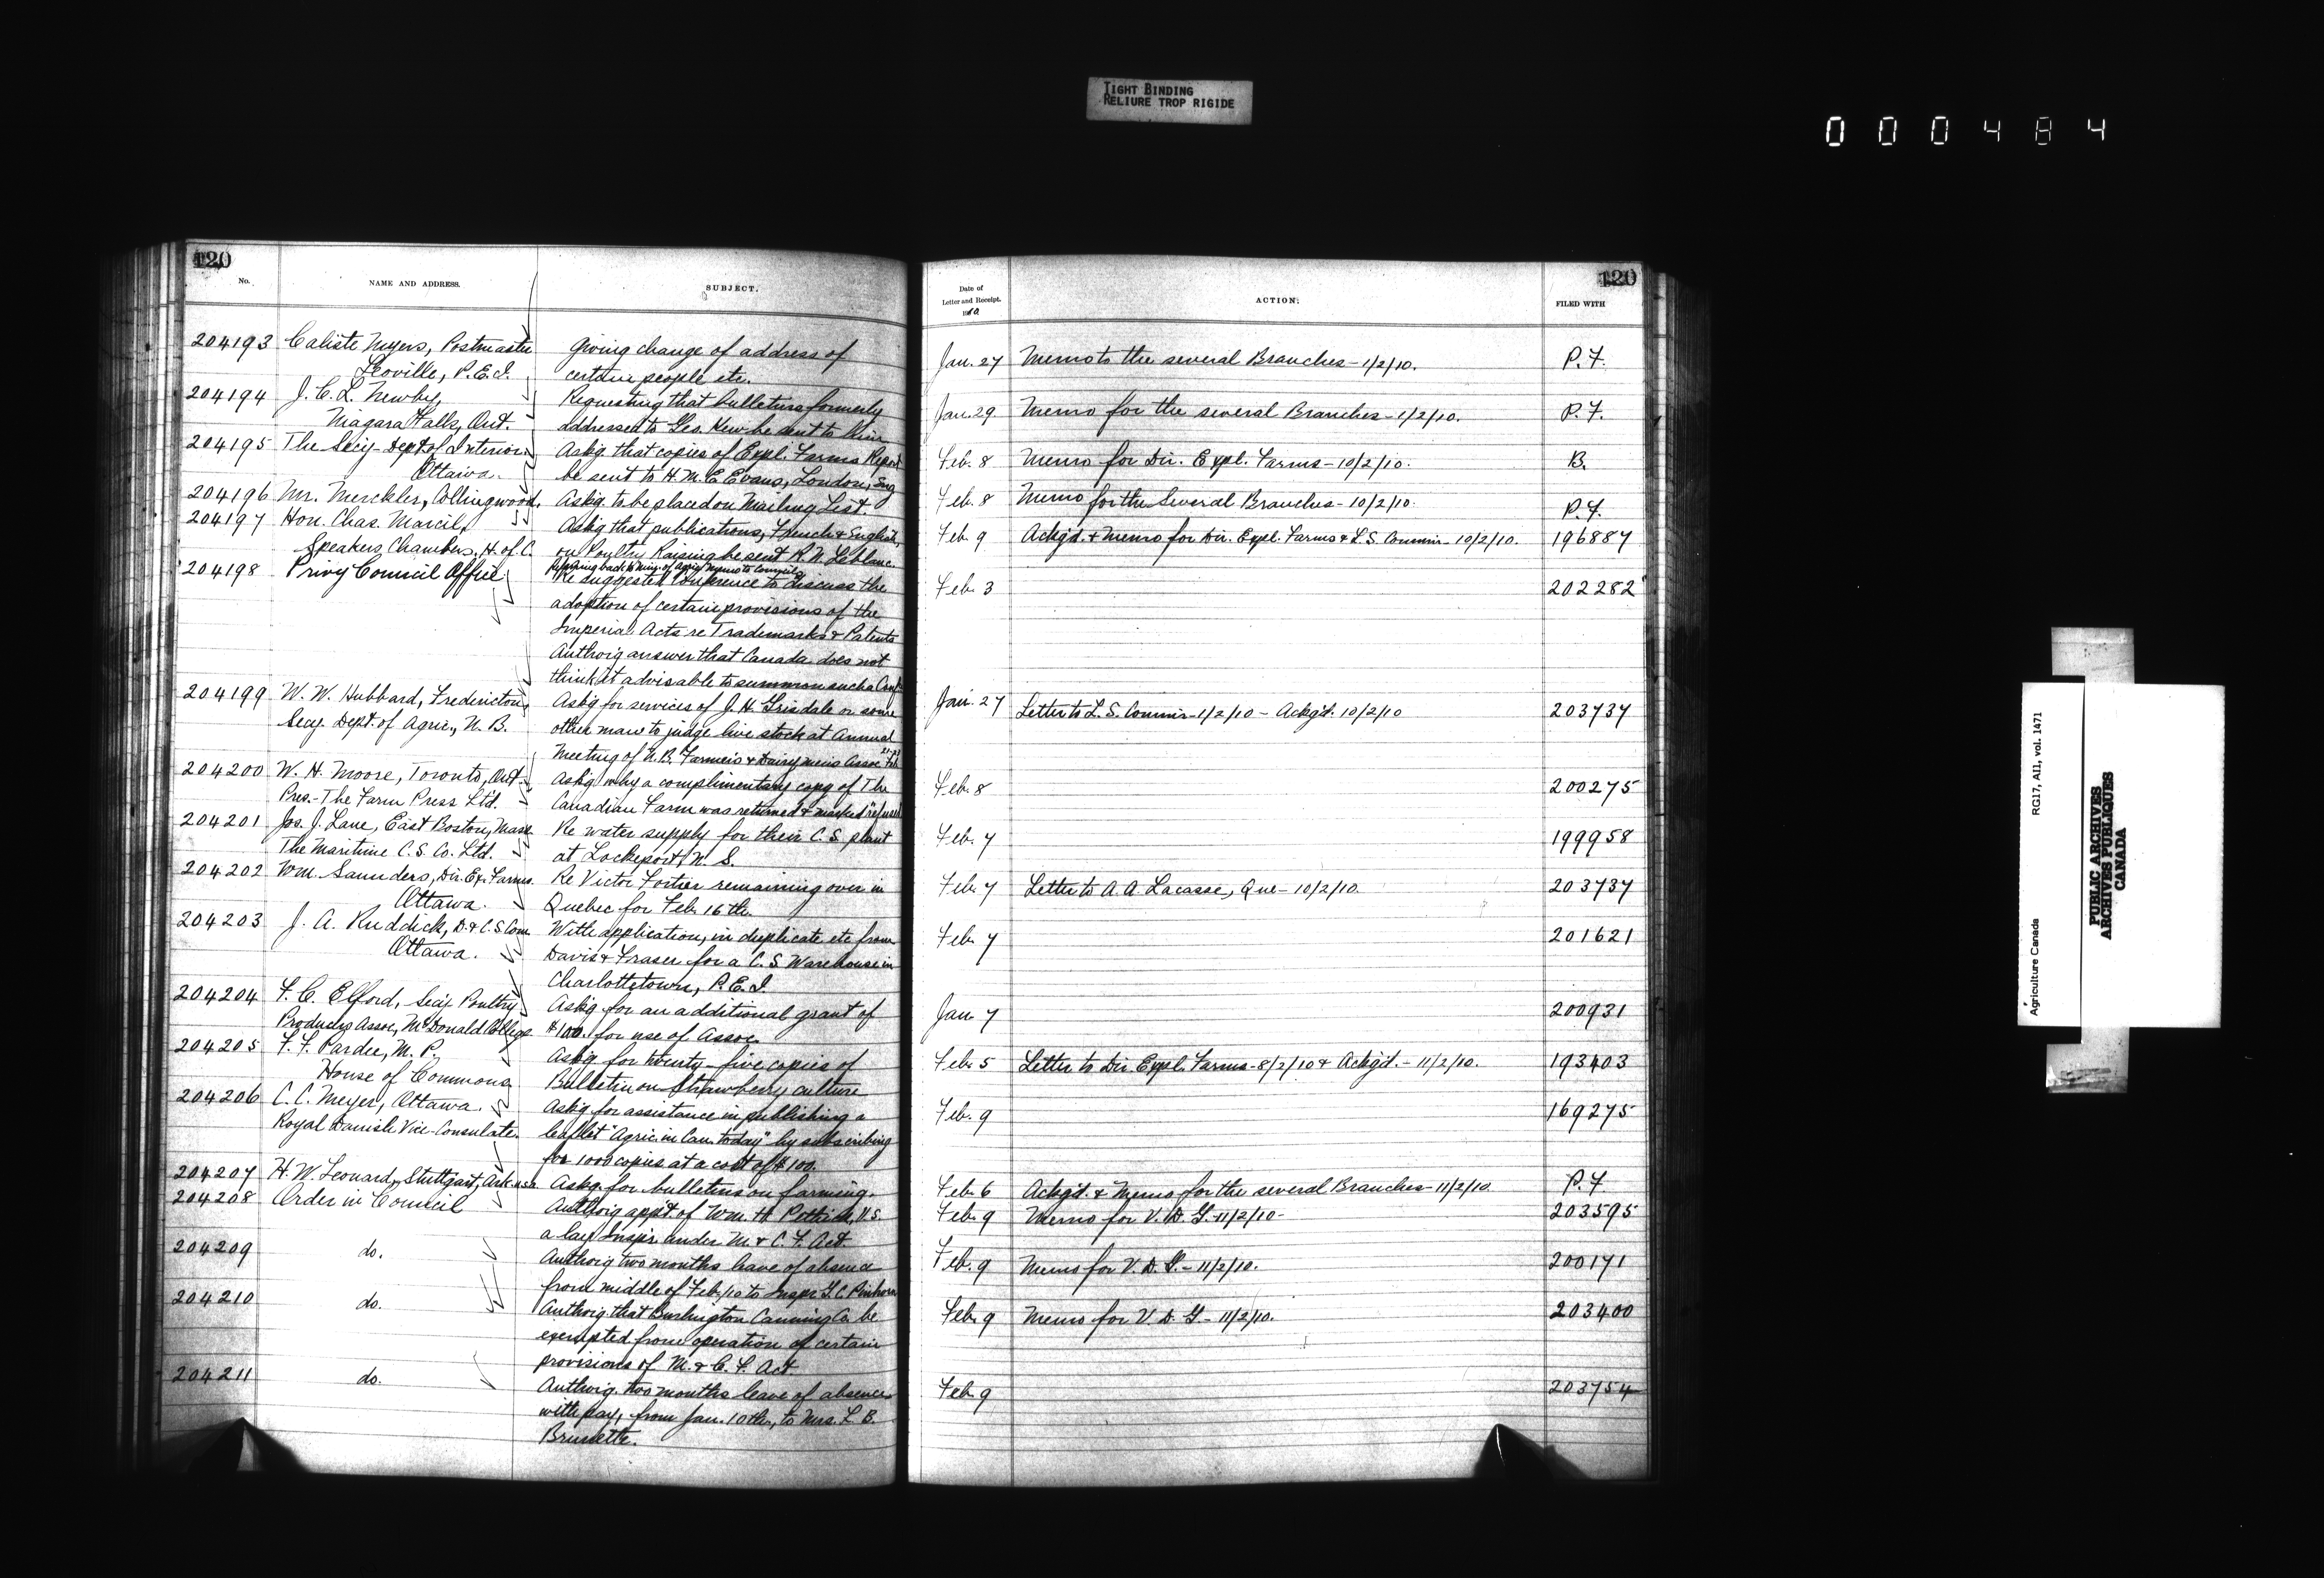 TIGHT BINDING
RELIURE TROP RIGIDE
000484
120
No. NAME AND ADDRESS. SUBJECT.
204193 Caliste Meyers, Postmaster Giving change of address of
Leoville, P.E.I. certain people etc.
204194 J. C. L. Newby, Requesting that bulletins formerly
Niagara Falls, Ont. addressed to Geo. Kew be sent to him
204195 The Secy- Dept of Interior, Ask'g that copies of Expl. Farms Report
Ottawa. be sent to H. M. E. Evans, London, Eng
204196 Mr. Merckler, Collingwood, Ask'g. to be placed on Mailing List.
204197 Hon. Chas. Marcil, Ask'g that publications, French & English,
Speakers Chambers, H. of C. on Poultry Raising be sent R. N. Leblanc.
204198 Privy Council Office back to Min. of Agric Memo to Council
Re suggested Conference to discuss the
adoption of certain provisions of the
Imperial Acts re Trademarks & Patents
Authorig answer that Canada does not
think it advisable to summon such a Conf.
204199 W. W. Hubbard, Fredericton, Ask'g for services of J. H. Grisdale or some
Secy. Dept. of Agric., N. B. other man to judge live stock at Annual
Meeting of N. B. Farmers & Dairymens Assoc
204200 W. H. Moore, Toronto, Ont. Ask'g why a complimentary copy of The
Pres.- The Farm Press Ltd. Canadian Farm was returned & marked "refused
204201 Jos. J. Lane, East Boston, Mass Re water supply for their C. S. plant
The Maritime C. S. Co. Ltd. at Lockeport, N. S.
204202 Wm. Saunders, Dir. Ex. Farms. Re Victor Fortier remaining over in
Ottawa. Quebec for Feb. 16th.
204203 J. A. Ruddick, D. & C. S. Com With application, in duplicate etc from
Ottawa. Davis & Fraser for a C. S. Warehouse in
Charlottetown, P. E. I.
204204 F. C. Elford, Secy. Poultry Ask'g for an additional grant of
Producers Assoc, McDonald College $100. for use of Assoc.
204205 F. F. Pardee, M. P. Ask'g for twenty-five copies of
House of Commons Bulletin on Strawberry culture
204206 C. C. Meyer, Ottawa. Ask'g for assistance in publishing a
Royal Danish Vice-Consulate. leaflet "Agric. in Can. today" by subscribing
for 1000 copies at a cost of $100.
204207 H. W. Leonard, Stuttgart, Ark. U.S.A. Ask'g for bulletins on farming.
204208 Order in Council Authorig app't. of Wm. H. V. S.
a lay Inspr. under M. & C. F. Act.
204209 do. Authorig two months leave of absence
from middle of Feb/10 to Inspr
204210 do. Authorig. that Burlington Canning Co. be
exempted from operation of certain
provisions of M. & C. F. Act.
204211 do. Authorig. two months leave of absence
with pay, from Jan. 10th, to Mrs. L. B.
Brunette.
120
Date of
Letter and Receipt. ACTION. FILED WITH
1910
Jan. 27 Memo to the several Branches - 1/2/10. P. F.
Jan. 29 Memo for the several Branches - 1/2/10. P. F.
Feb. 8 Memo for Dir. Expl. Farms - 10/2/10. B.
Feb. 8 Memo for the Several Branches - 10/2/10. P. F.
Feb. 9 Ackg'd. & Memo for Dir. Expl. Farms & L. S. Commir - 10/2/10. 196887
Feb. 3 202282
Jan. 27 Letter to L. S. Commir - 1/2/10 - Ackg'd. 10/2/10 203737
Feb. 8 200275
Feb. 7 199958
Feb. 7 Letter to A. A. Lacasse, Que - 10/2/10. 203737
Feb. 7 201621
Jan. 7 200931
Feb. 5 Letter to Dir. Expl. Farms - 8/2/10 & Ackg'd. - 11/2/10. 193403
Feb. 9 169275
Feb. 6 Ackg'd. & Memo for the several Branches - 11/2/10. P. F.
Feb. 9 Memo for V. D. G. - 11/2/10 - 203595
Feb. 9 Memo for V. D. G. - 11/2/10. 200171
Feb. 9 Memo for V. D. G - 11/2/10. 203400
Feb. 9 203754
Agriculture Canada RG17, AII, vol. 1471
PUBLIC ARCHIVES
ARCHIVES PUBLIQUES
CANADA